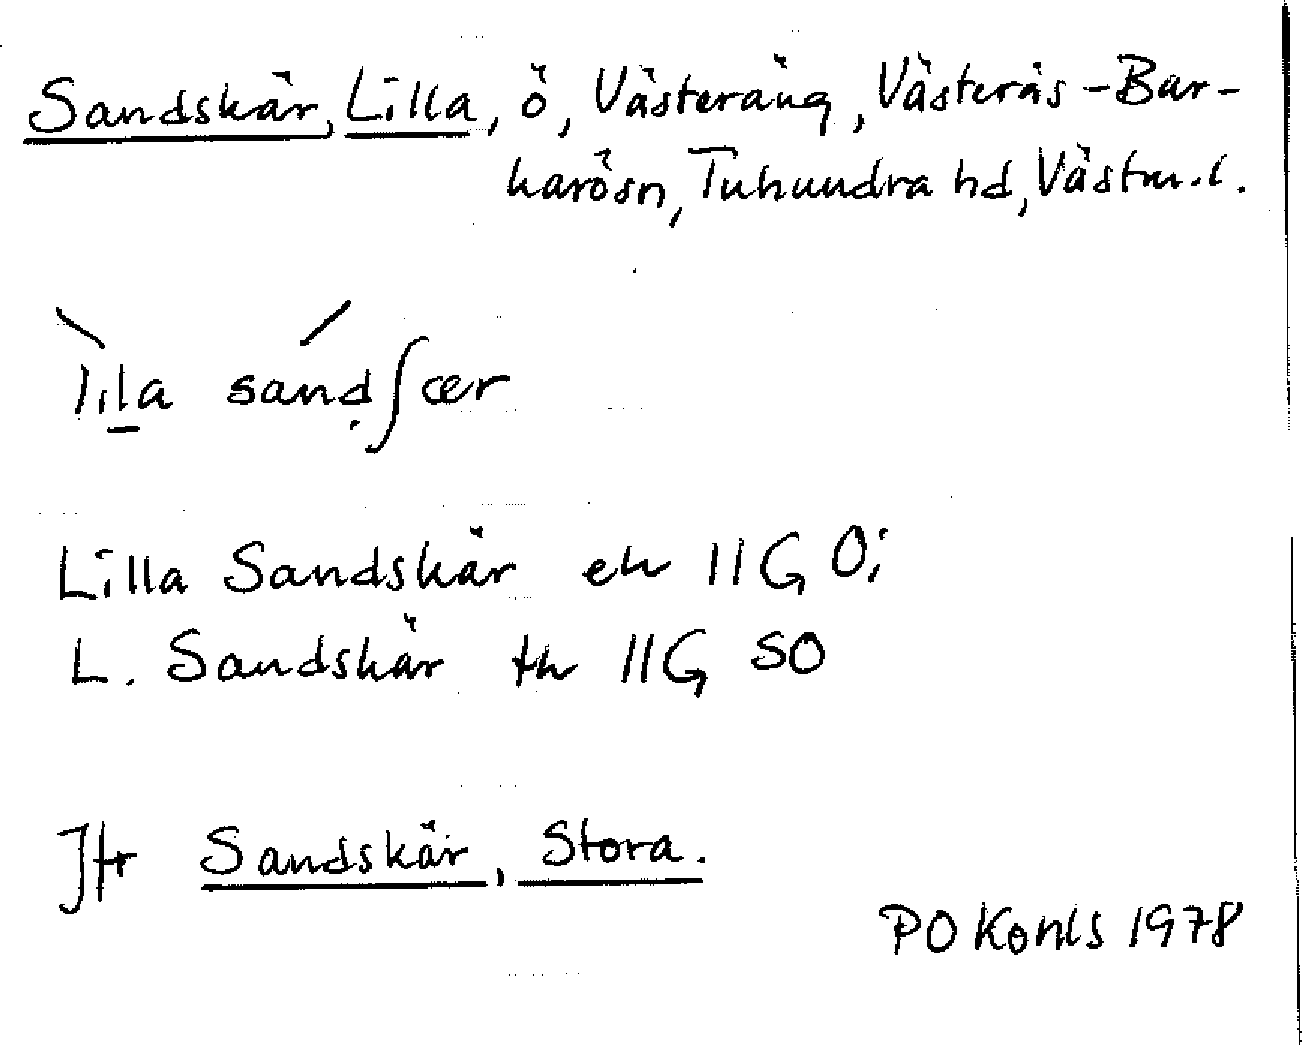 Sandskär, Lilla, ö, Västeräng, Västerås-Bar-
karösn, Tuhundra hd, Västm.l.
lila sandʃær
Lilla Sandskär ek 11G 0i
L. Sandskär tk 11G SO
Jfr Sandskär, Stora.
PO Konls 1978